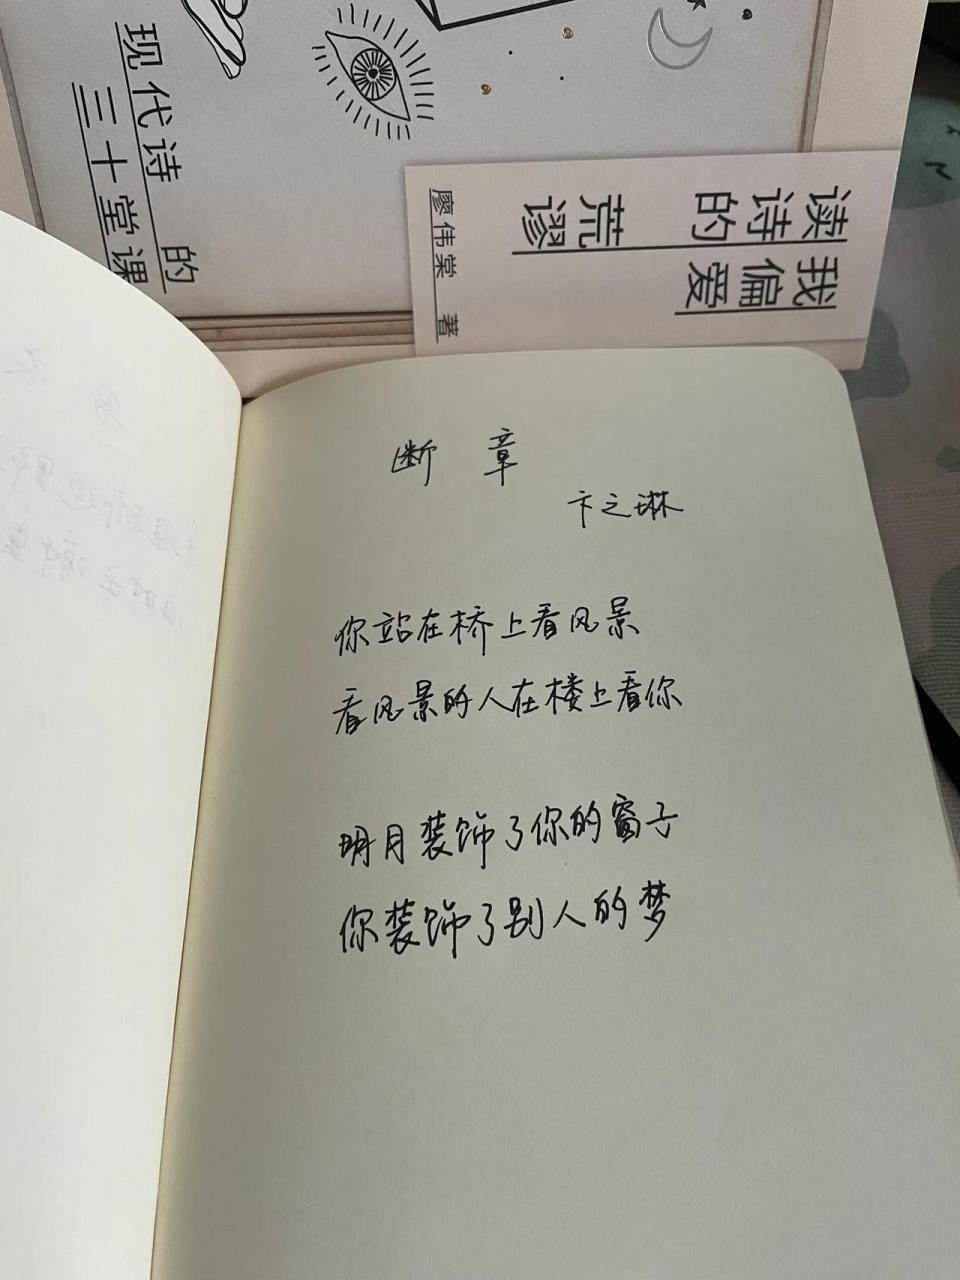 现代诗的
三十堂课
我偏爱
读诗的
荒谬
廖伟棠 著
断 章
卞之琳
你站在桥上看风景
看风景的人在楼上看你
明月装饰了你的窗子
你装饰了别人的梦